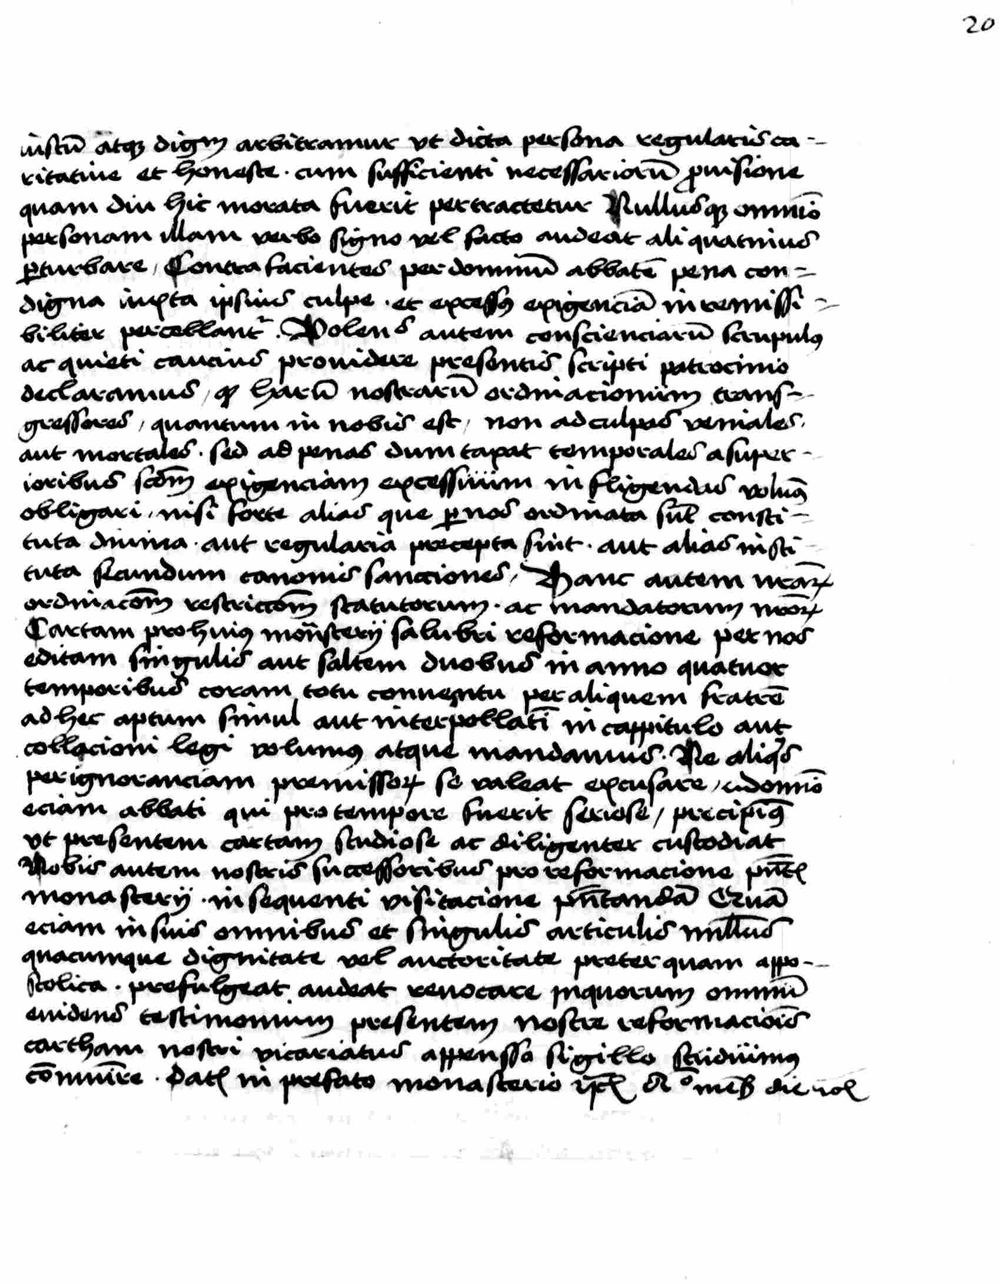 20
iustū atqꝫ dignū arbitramur vt dicta persona regularis ca-
ritatiue et honeste · cum sufficienti necessariorū ꝓuisione
quam diu hic morata fuerit pertractetur Nullusqꝫ omnīo
personam illam verbo signo vel facto audeat aliquatnius
ꝑturbare / Contrafacientes per dominū abbatē pena con-
digna iuxta ipsius culpe · et excessꝰ exigenciā in remissi-
biliter percellantᷣ · Volens autem conscienciarū scrupulis
ac quieti caucius prouidere presentis scripti patrocinio
declaramus / qꝫ harū nostrarū ordinacionum trans-
gressores / quantum in nobis est / non ad culpas veniales
aut mortales · sed ad penas dumtaxat temporales a super-
ioribus scdm̄ exigenciam excessuum infligendas volumꝰ
obligari / nisi forte alias que ꝑ nos ordinata sūt consti-
tuta diuina · aut regularia precepta sint · aut alias insti-
tuta secundum canonis sancciones / Hanc autem nr̄aꝝ
ordinacōm restriccōm statutorum · ac mandatorum nr̄oꝝ
Cartam pro huius monsterij salubri reformacione per nos
editam singulis aut saltem duobus in anno quatuor
temporibus coram totu conuentu per aliquem fratrē
ad hec aptum simul aut interpollatī in cappitulo aut
collacioni legi volumus atque mandamus · Ne aliqͥs
per ignoranciam premissoꝝ se valeat excusare / dōmīo
eciam abbati qui pro tempore fuerit seriose / precipimꝰ
vt presentem cartam studiose ac diligenter custodiat
Nobis autem nostris successoribus pro reformacione pn̄tꝭ
monasterij · in sequenti visitacione pn̄tandā
eciam in suis omnibus et singulis articulis nullus
quacumque dignitate vel auctoritate preterquam appo-
stolica · prefulgeat audeat reuocare inquorum omniū
euidens testimonium presentem nostre reformaciōis
cartham nostri vicariatus appenso sigillo
cōmuīre · Datꝭ in prefato monasterio die